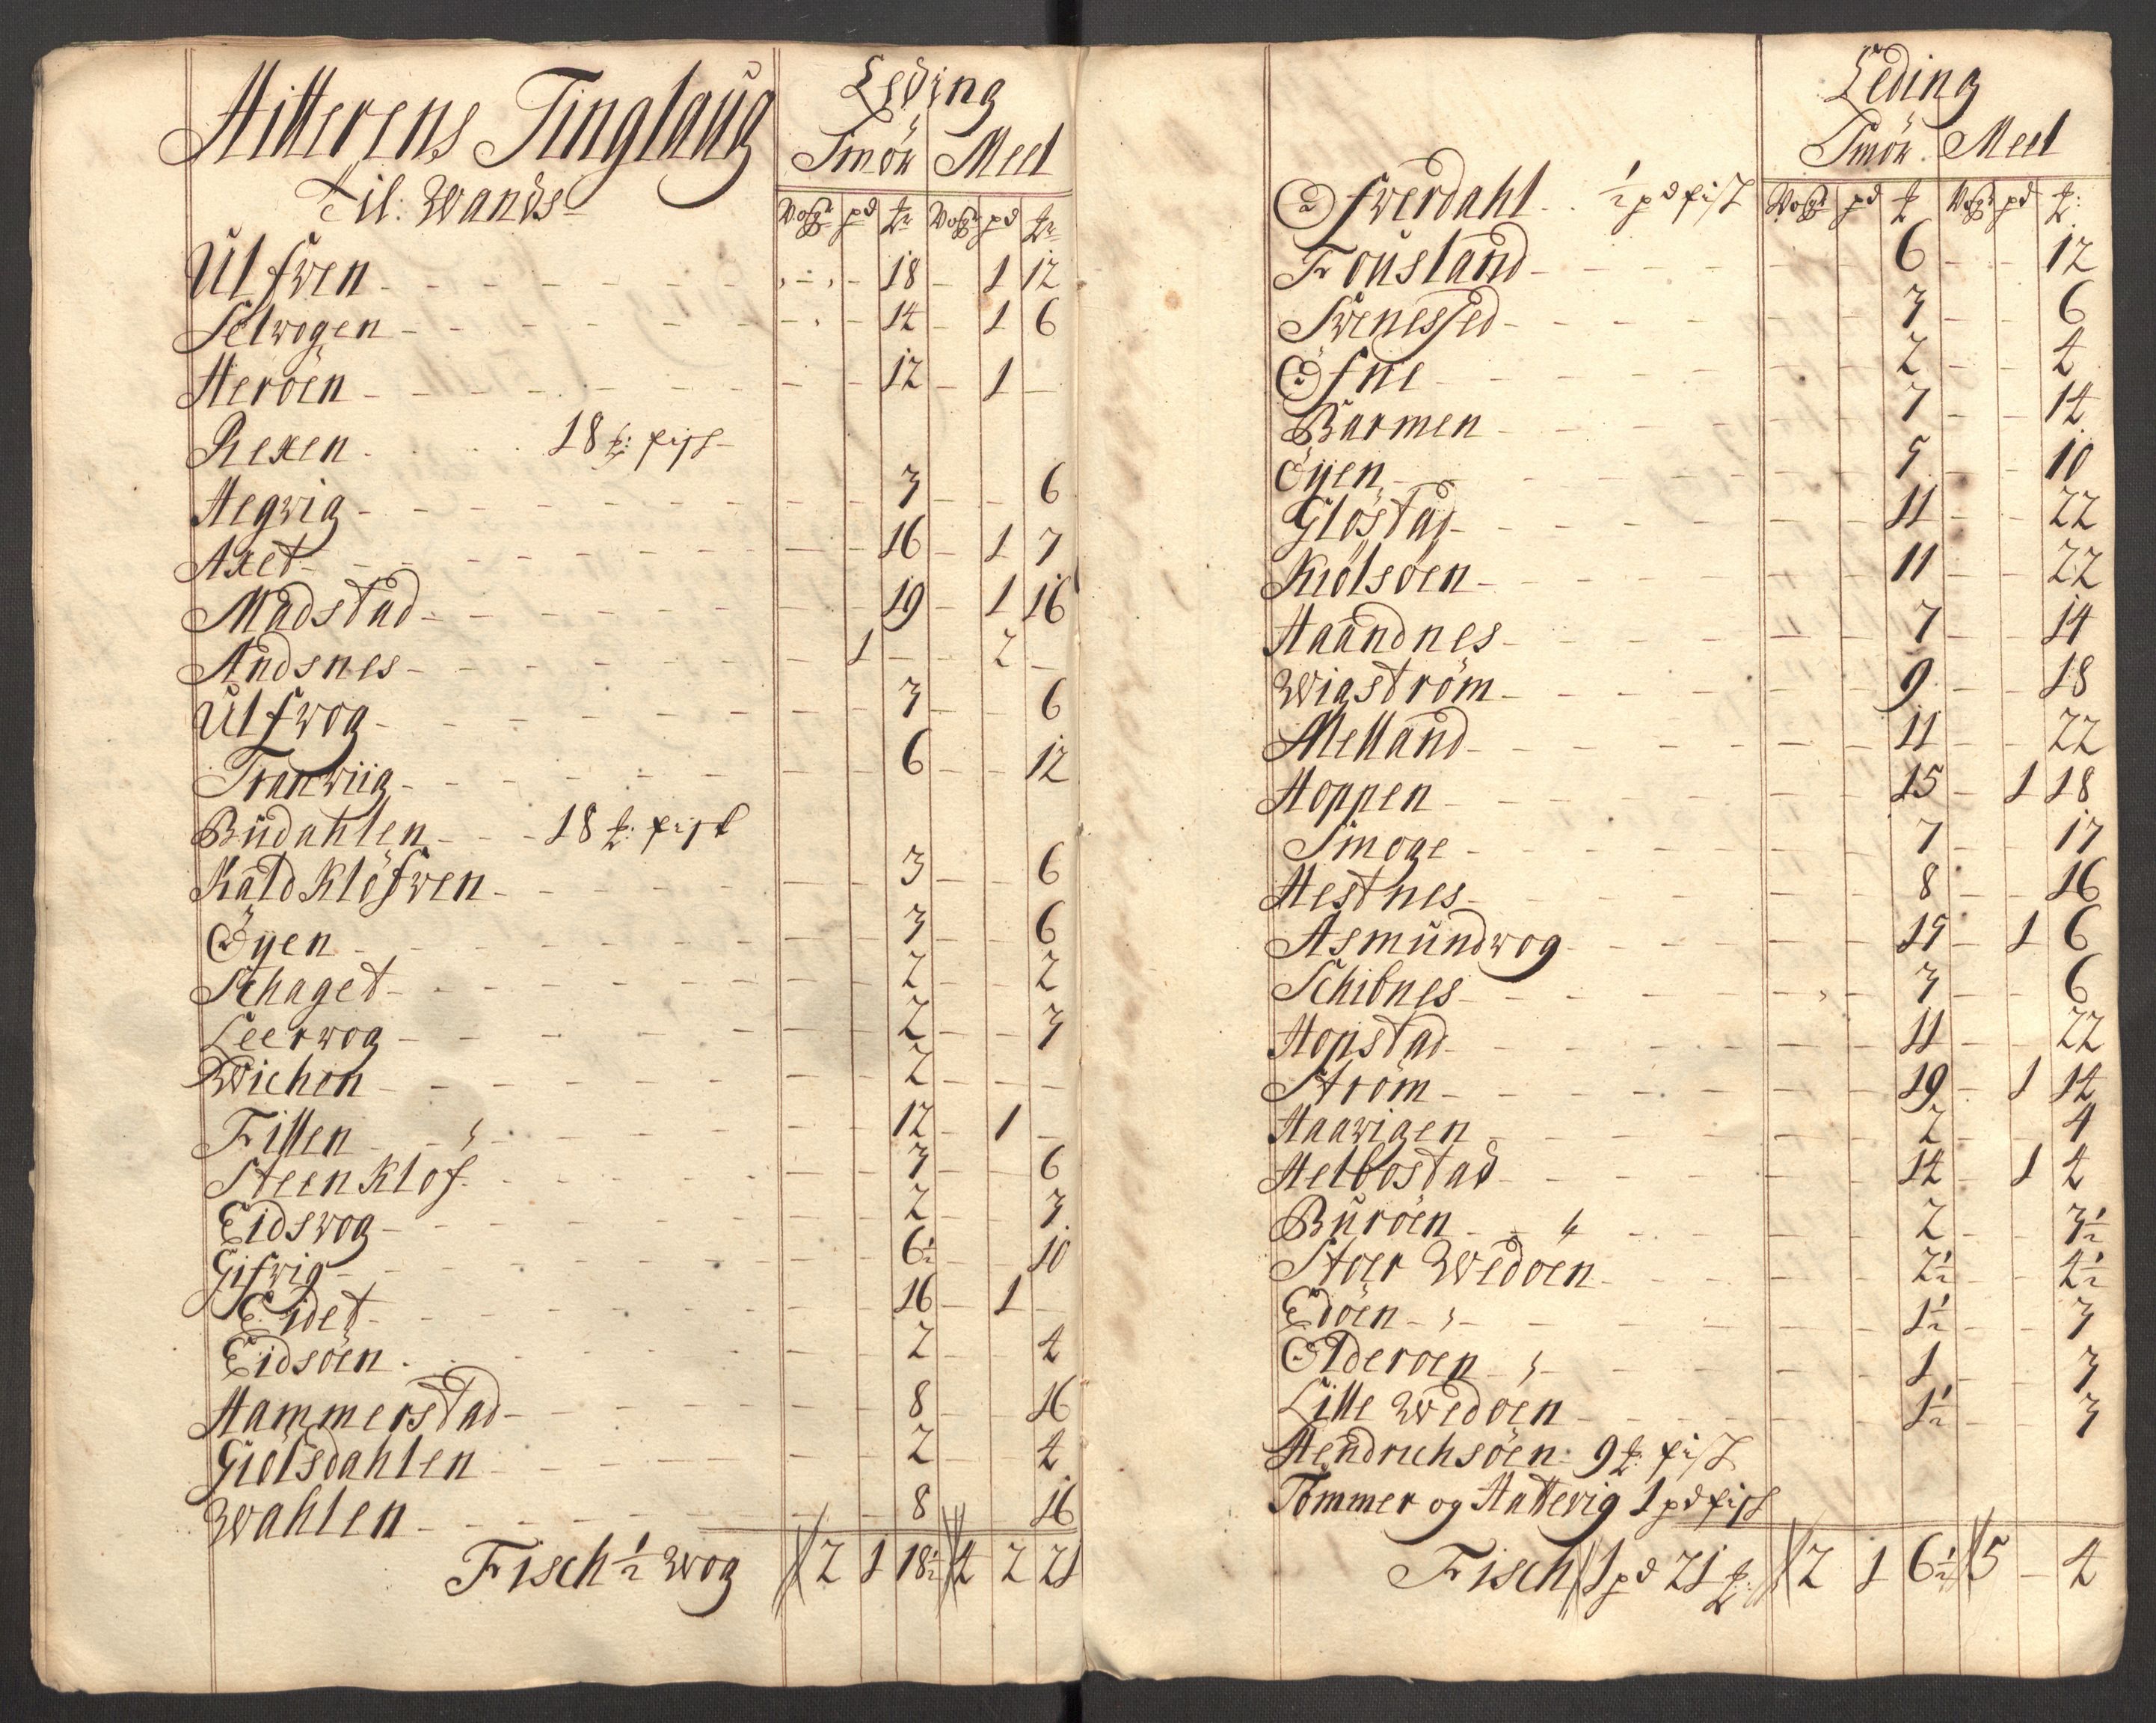 Hitterens Tinglaug
Til: Wands
Leding
Smör Meel
Wogr pd ℔r Wogr pd ℔r
Ulfwen - - 18 - 1 12
Selwogen - - 14 - 1 6
Heröen - - 12 - 1 -
Rexen . . 18 ℔: fisk
Hegwig - - 3 - - 6
Axet - - 16 - 1 7
Madstad - - 19 - 1 16
Andsnes - 1 - - 2 -
Ulfwog - - 3 - - 6
Tranwiig - - 6 - - 12
Budahlen - - 18 ℔: fisk
Kaldklöfwen - - 3 - - 6
Öyen - - 3 - - 6
Schaget - - 2 - - 2
Leerwog - - 2 - - 3
Wichon - - 2 - - -
Fillen - - 12 - 1 -
Steenklof - - 3 - - 6
Eidswog - - 2 - - 3
Gifwig - - 6½ - - 10
Eidet - - 16 - 1 -
Eidsöen - - 2 - - 4
Hammerstad - - 8 - - 16
Giölsdahlen - - 2 - - 4
Wahlen - - 8 - - 16
Fisch ½ wog // 2 1 18½ // 4 2 21
Leding
Smör. Meel
Wogr pd ℔ Wogr pd ℔:
Öfwerdahl . . ½ pd fisk
Fousland - - 6 - - 12
Swenessed - - 3 - - 6
Öfne - - 2 - - 4
Barmen - - 7 - - 14
Öyen - - 5 - - 10
Glöstad - - 11 - - 22
Kiölsöen - - 11 - - 22
Haandnes - - 7 - - 14
Wigström - - 9 - - 18
Melland - - 11 - - 22
Hoppen - - 15 - 1 18
Smoge - - 7 - - 17
Hestnes - - 8 - - 16
Asmundwog - - 15 - 1 6
Schibnes - - 3 - - 6
Hopstad - - 11 - - 22
Ström - - 19 - 1 14
Haawigen - - 2 - - 4
Helbostad - - 14 - 1 4
Buröen - - 2 - - 3½
Stoer Wedöen - - 2½ - - 4½
Edöen - - 1½ - - 3
Olderoen - - 1 - - 3
Lille Wedöen - - 1½ - - 3
Hendrichsöen: 9 ℔: fisk
Tömmer og Hattevig 1 pd fisk
Fisch // 1 pd 21 ℔: // 2 1 6½ // 5 - 4